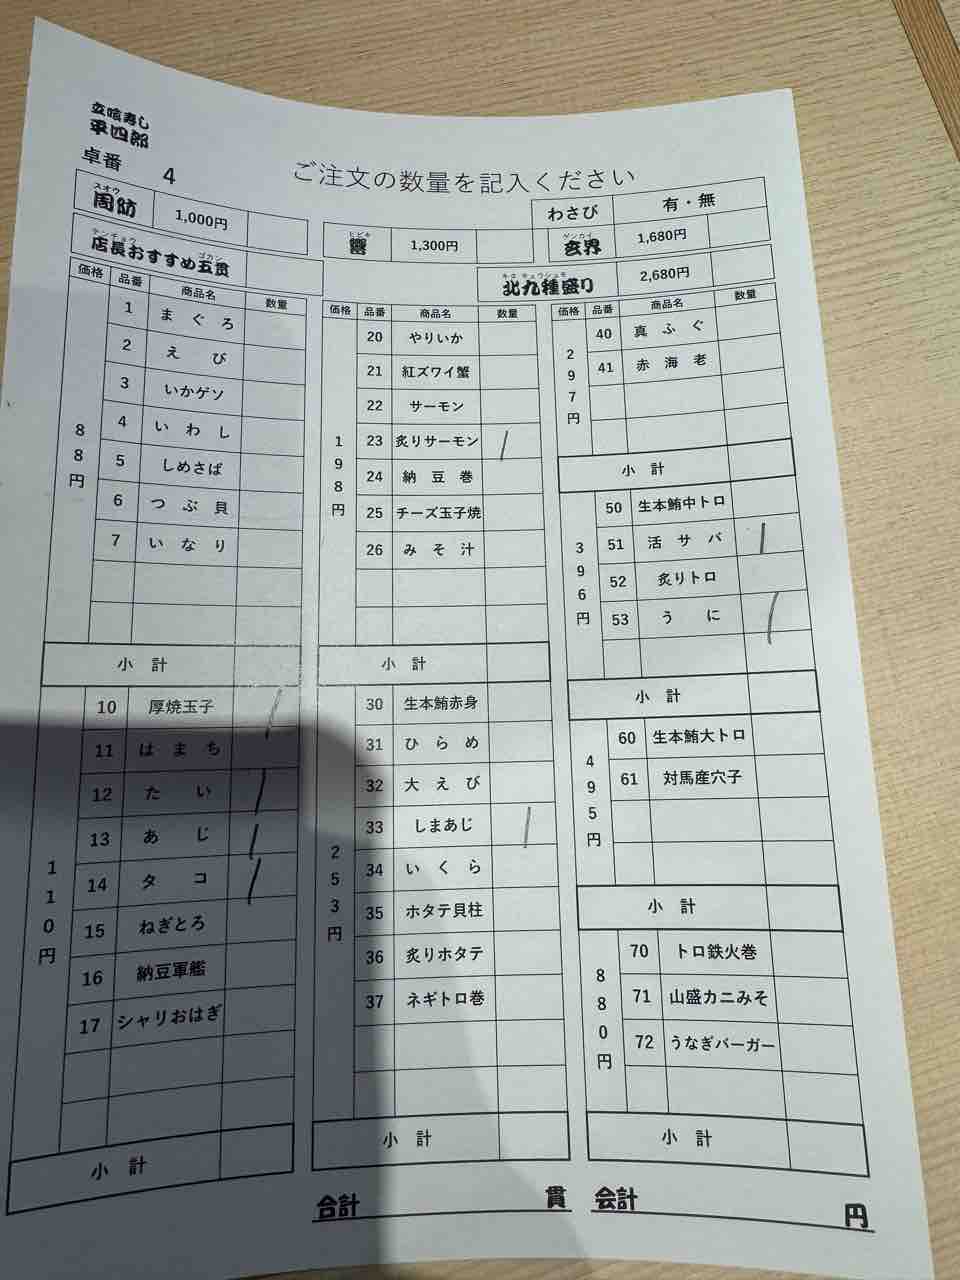 立喰寿し
平四郎
卓番 4
ご注文の数量を記入ください
わさび 有・無
スオウ
周防 1,000円
ヒビキ
響 1,300円
ゲンカイ
玄界 1,680円
テンチョウ ゴカン
店長おすすめ五貫
キタ キュウシュモ
北九種盛り 2,680円
価格 品番 商品名 数量
88円
1 まぐろ
2 えび
3 いかゲソ
4 いわし
5 しめさば
6 つぶ貝
7 いなり
小計
110円
10 厚焼玉子
11 はまち /
12 たい /
13 あじ /
14 タコ /
15 ねぎとろ
16 納豆軍艦
17 シャリおはぎ
小計
価格 品番 商品名 数量
198円
20 やりいか
21 紅ズワイ蟹
22 サーモン
23 炙りサーモン /
24 納豆巻
25 チーズ玉子焼
26 みそ汁
小計
253円
30 生本鮪赤身
31 ひらめ
32 大えび
33 しまあじ /
34 いくら
35 ホタテ貝柱
36 炙りホタテ
37 ネギトロ巻
小計
価格 品番 商品名 数量
297円
40 真ふぐ
41 赤海老
小計
396円
50 生本鮪中トロ
51 活サバ /
52 炙りトロ
53 うに /
小計
495円
60 生本鮪大トロ
61 対馬産穴子
小計
880円
70 トロ鉄火巻
71 山盛カニみそ
72 うなぎバーガー
小計
合計 貫 会計 円